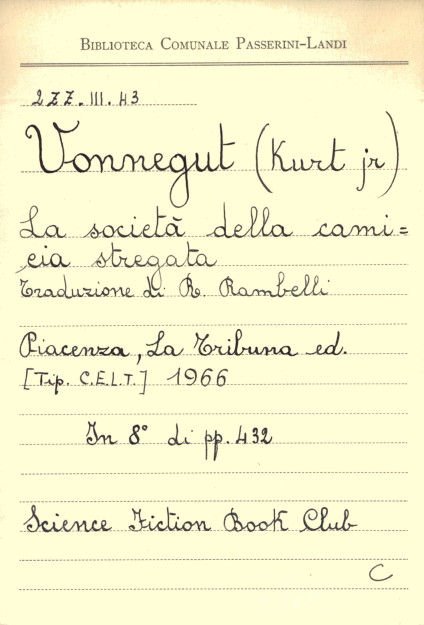 BIBLIOTECA COMUNALE PASSERINI-LANDI
2ZZ.III.43
Vonnegut (Kurt jr)
La società della cami=
cia stregata
Traduzione di R. Rambelli
Piacenza, La Tribuna ed.
[Tip. C.E.L.T.] 1966
In 8° di pp. 432
Science Fiction Book Club
C